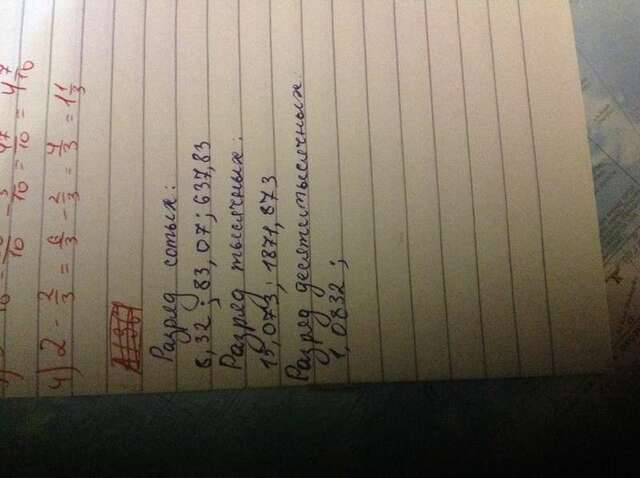 4) 2 - 2/3 = 6/3 - 2/3 = 4/3 = 1 1/3
Разряд сотых:
8,32; 83,07; 637,83
Разряд тысячных:
15,073; 1871,873
Разряд десятитысячных
1,0832;